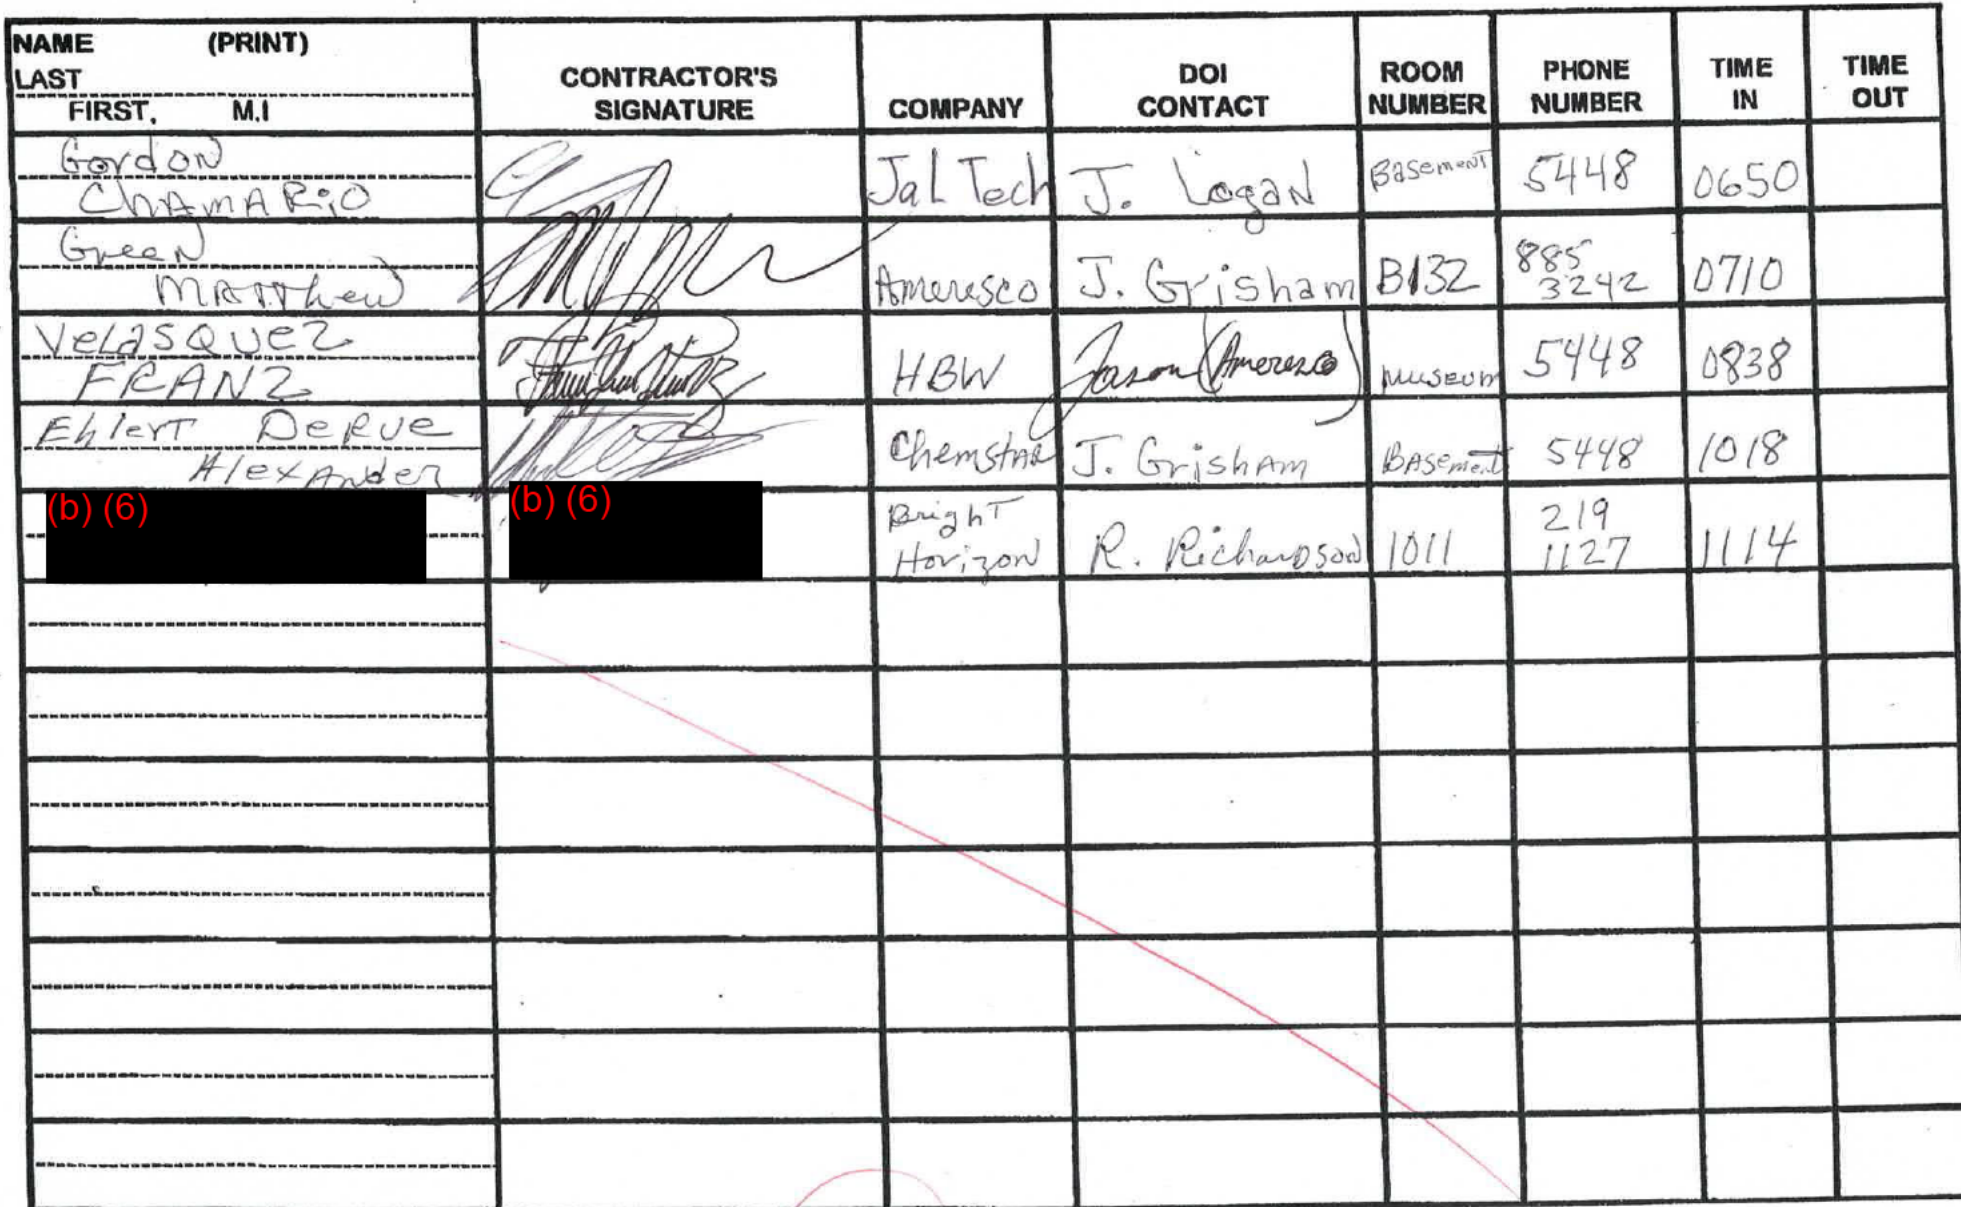 NAME (PRINT)
LAST
FIRST, M.I
CONTRACTOR'S SIGNATURE
COMPANY
DOI CONTACT
ROOM NUMBER
PHONE NUMBER
TIME IN
TIME OUT
Gordon
CHAMARiO
JaL Tech J. Logan Basement 5448 0650
Green
MATThew
Ameresco J. Grisham B132 885 3242 0710
VeLasquez
FRANZ
HBW Jason (Ameresco) museum 5448 0838
Ehlert DeRue
Alexander
Chemstar J. Grisham Basement 5448 1018
(b) (6) (b) (6)
Bright Horizon R. Richardson 1011 219 1127 1114